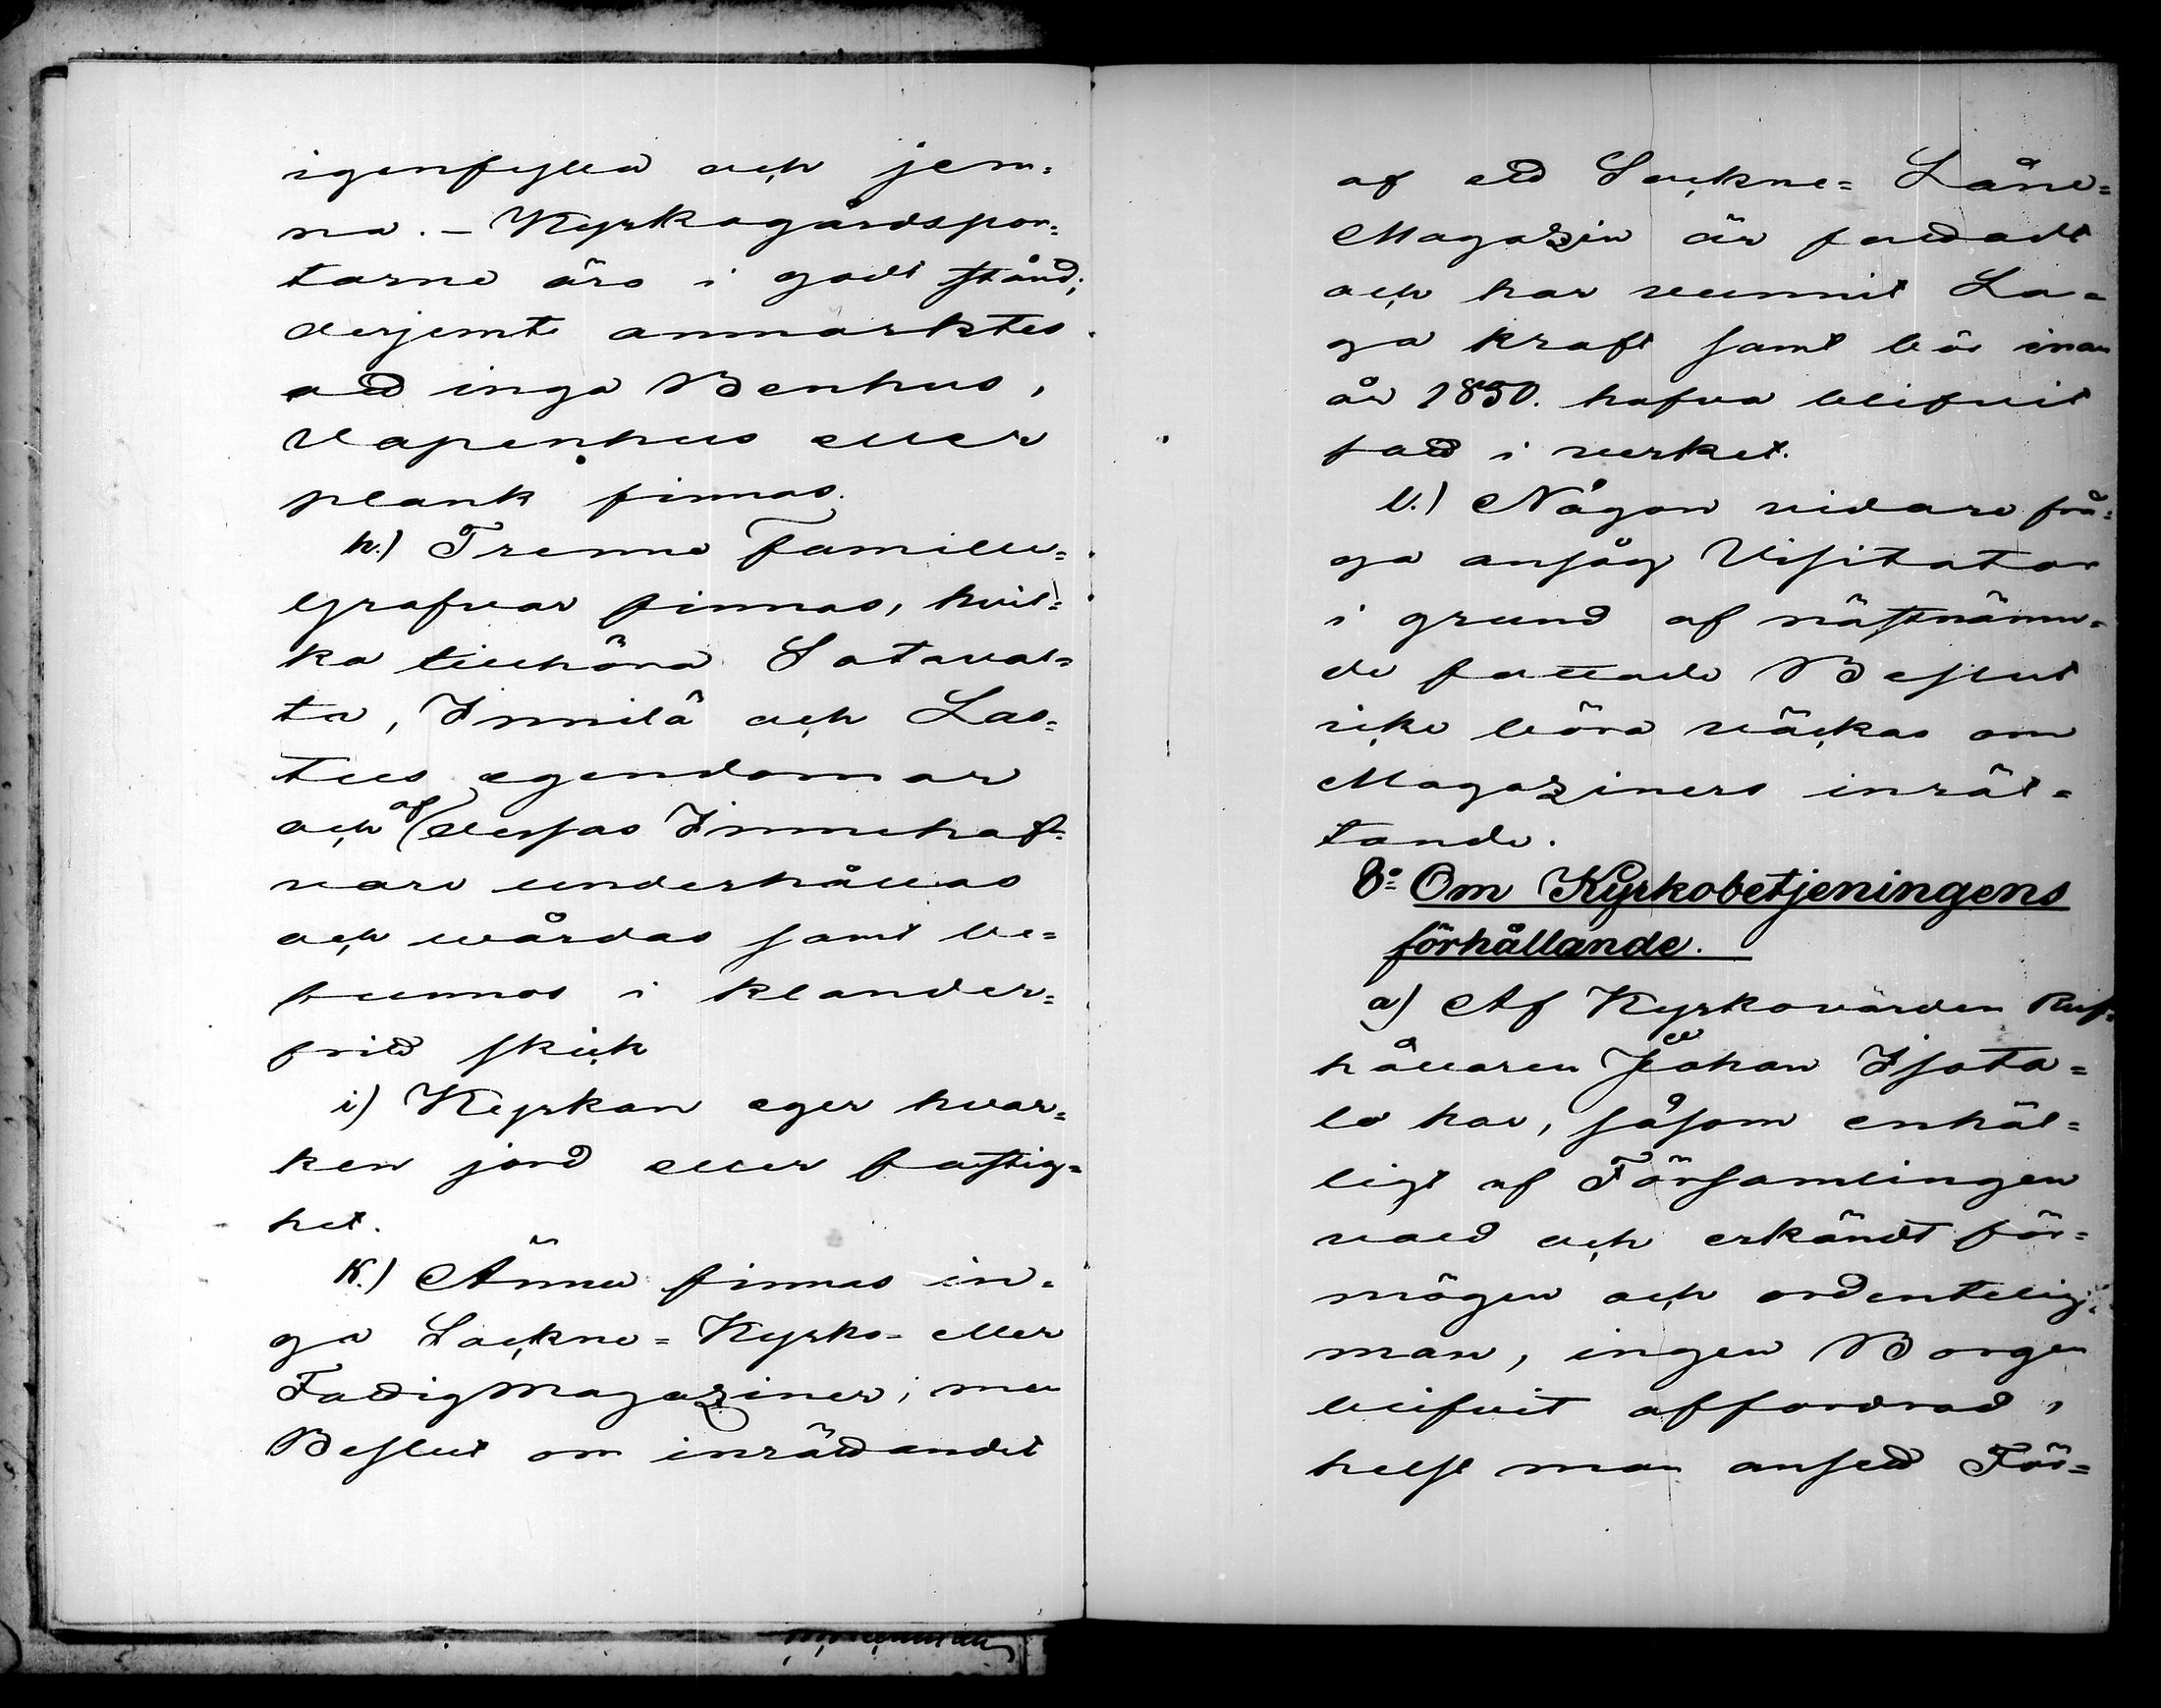 igenfylla och jem=
na. – Kyrkogårdspor=
tarne äro i godt stånd;
derjemte anmärktes
att inga Benhus,
Vapenhus eller
plank finnas.
h.) Trenne Famille=
grafvar finnas, hvil=
ka tillhöra Sataval=
ta, Innilä och Las=
tus egendomar
och af dessas Innehaf=
vare underhållas
och wårdas samt be=
funnos i klander=
fritt skick
i) Kyrkan eger hvar=
ken jord eller fastig=
het.
k.) Ännu finnas in=
ga Sockne= Kyrko- eller
Fattigmagaziner; men
Beslut om inrättandet
af ett Sockne= Låne=
Magazin är fattadt
och har vunnit La=
ga kraft samt bör inan
år 1850. hafva blifvit
satt i verket.
l.) Någon vidare frå=
ga ansåg Visitator
i grund af nästnämn=
de fattade Beslut
icke böra väckas om
Magaziners inrät=
tande.
8º Om Kyrkobetjeningens
förhållande.
a) Af Kyrkovärden Rus=
hållaren Johan Isota=
lo har, såsom enhäl=
ligt af Församlingen
vald och erkändt för=
mögen och ordentelig
man, ingen Borgen
blifvit affordrad,
helst man ansett För=